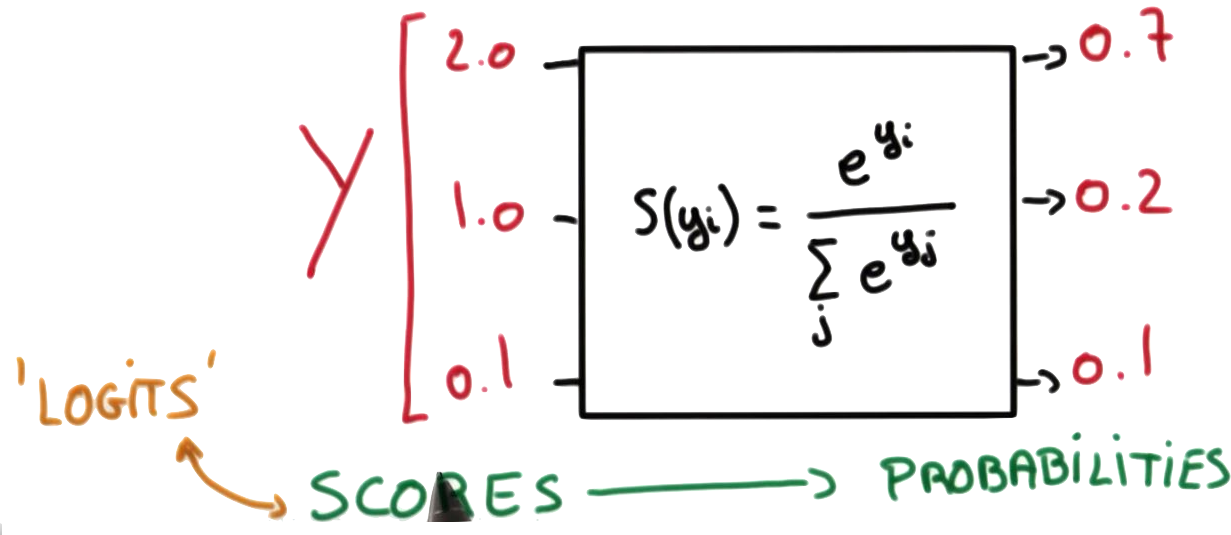 Y
2.0
1.0
0.1
S(yi) = e^yi / Σj e^yj
0.7
0.2
0.1
'LOGiTS'
SCORES
PROBABiLiTiES